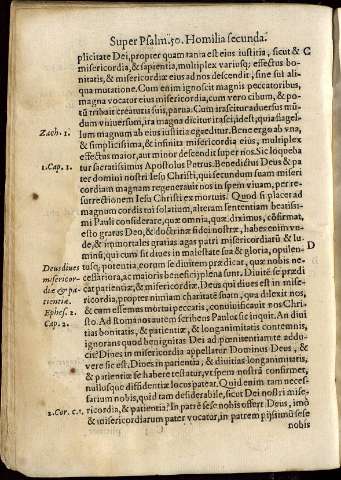 Super Psalm. 50. Homilia secunda.
plicitate Dei, propter quam tanta est eius iustitia, sicut & C
misericordia, & sapientia, multiplex variusq; effectus bo-
nitatis, & misericordiæ eius ad nos descendit, sine sui ali-
qua mutatione. Cum enim ignoscit magnis peccatoribus,
magna vocatur eius misericordia, cum vero cibum, & po-
tũ tribuit creaturis suis, parua: Cum irascitur aduersus mũ-
dum vniuersum, ira magna dicitur irasci, idest, quia flagel-
Zach. 1.
lum magnum ab eius iustitia egreditur. Bene ergo ab vna,
& simplicissima, & infinita misericordia eius, multiplex
effectus maior, aut minor descendit super nos. Sic loqueba
1. Cap. 1.
tur sacratissimus Apostolus Petrus. Benedictus Deus & pa
ter domini nostri Iesu Christi, qui secundum suam miseri
cordiam magnam regenerauit nos in spem viuam, per re-
surrectionem Iesu Christi ex mortuis. Quod si placet ad
magnum cordis tui solatium, alteram sententiam beatissi-
mi Pauli considerare, quæ omnia, quæ diximus, cõfirmat,
esto gratus Deo, & doctrinæ fidei nostræ, habes enim vn-
de, & immortales gratias agas patri misericordiarũ & lu-
minũ, qui cum sit diues in maiestate sua & gloria, opulen- D
Deus diues
tusq; potentia, eorum se diuitem prædicat, quæ nobis ne-
misericor-
cessariora, ac maioris beneficij plena sunt. Diuitẽ se prædi
diæ & pa-
cat patientiæ, & misericordiæ. Deus qui diues est in mise-
tientiæ.
ricordia, propter nimiam charitatẽ suam, qua dilexit nos,
Ephes. 2.
& cum essemus mortui peccatis, conuiuificauit nos Chri-
Cap. 2.
sto. Ad Romanos autem scribens Paulus sic inquit. An diui
tias bonitatis, & patientiæ, & longanimitatis contemnis,
ignorans quod benignitas Dei ad pœnitentiam te addu-
cit? Diues in misericordia appellatur Dominus Deus, &
vere sic est. Diues in patientia, & diuitias longanimitatis,
& patientiæ se habere testatur, vt spem nostrã confirmet,
nullusque diffidentiæ locus pateat. Quid enim tam neces-
sarium nobis, quid tam desiderabile, sicut Dei nostri mise-
2. Cor. c. 1.
ricordia, & patientia? In patrẽ sese nobis offert Deus, imò
& misericordiarum pater vocatur, in patrem pijssimũ sese
nobis